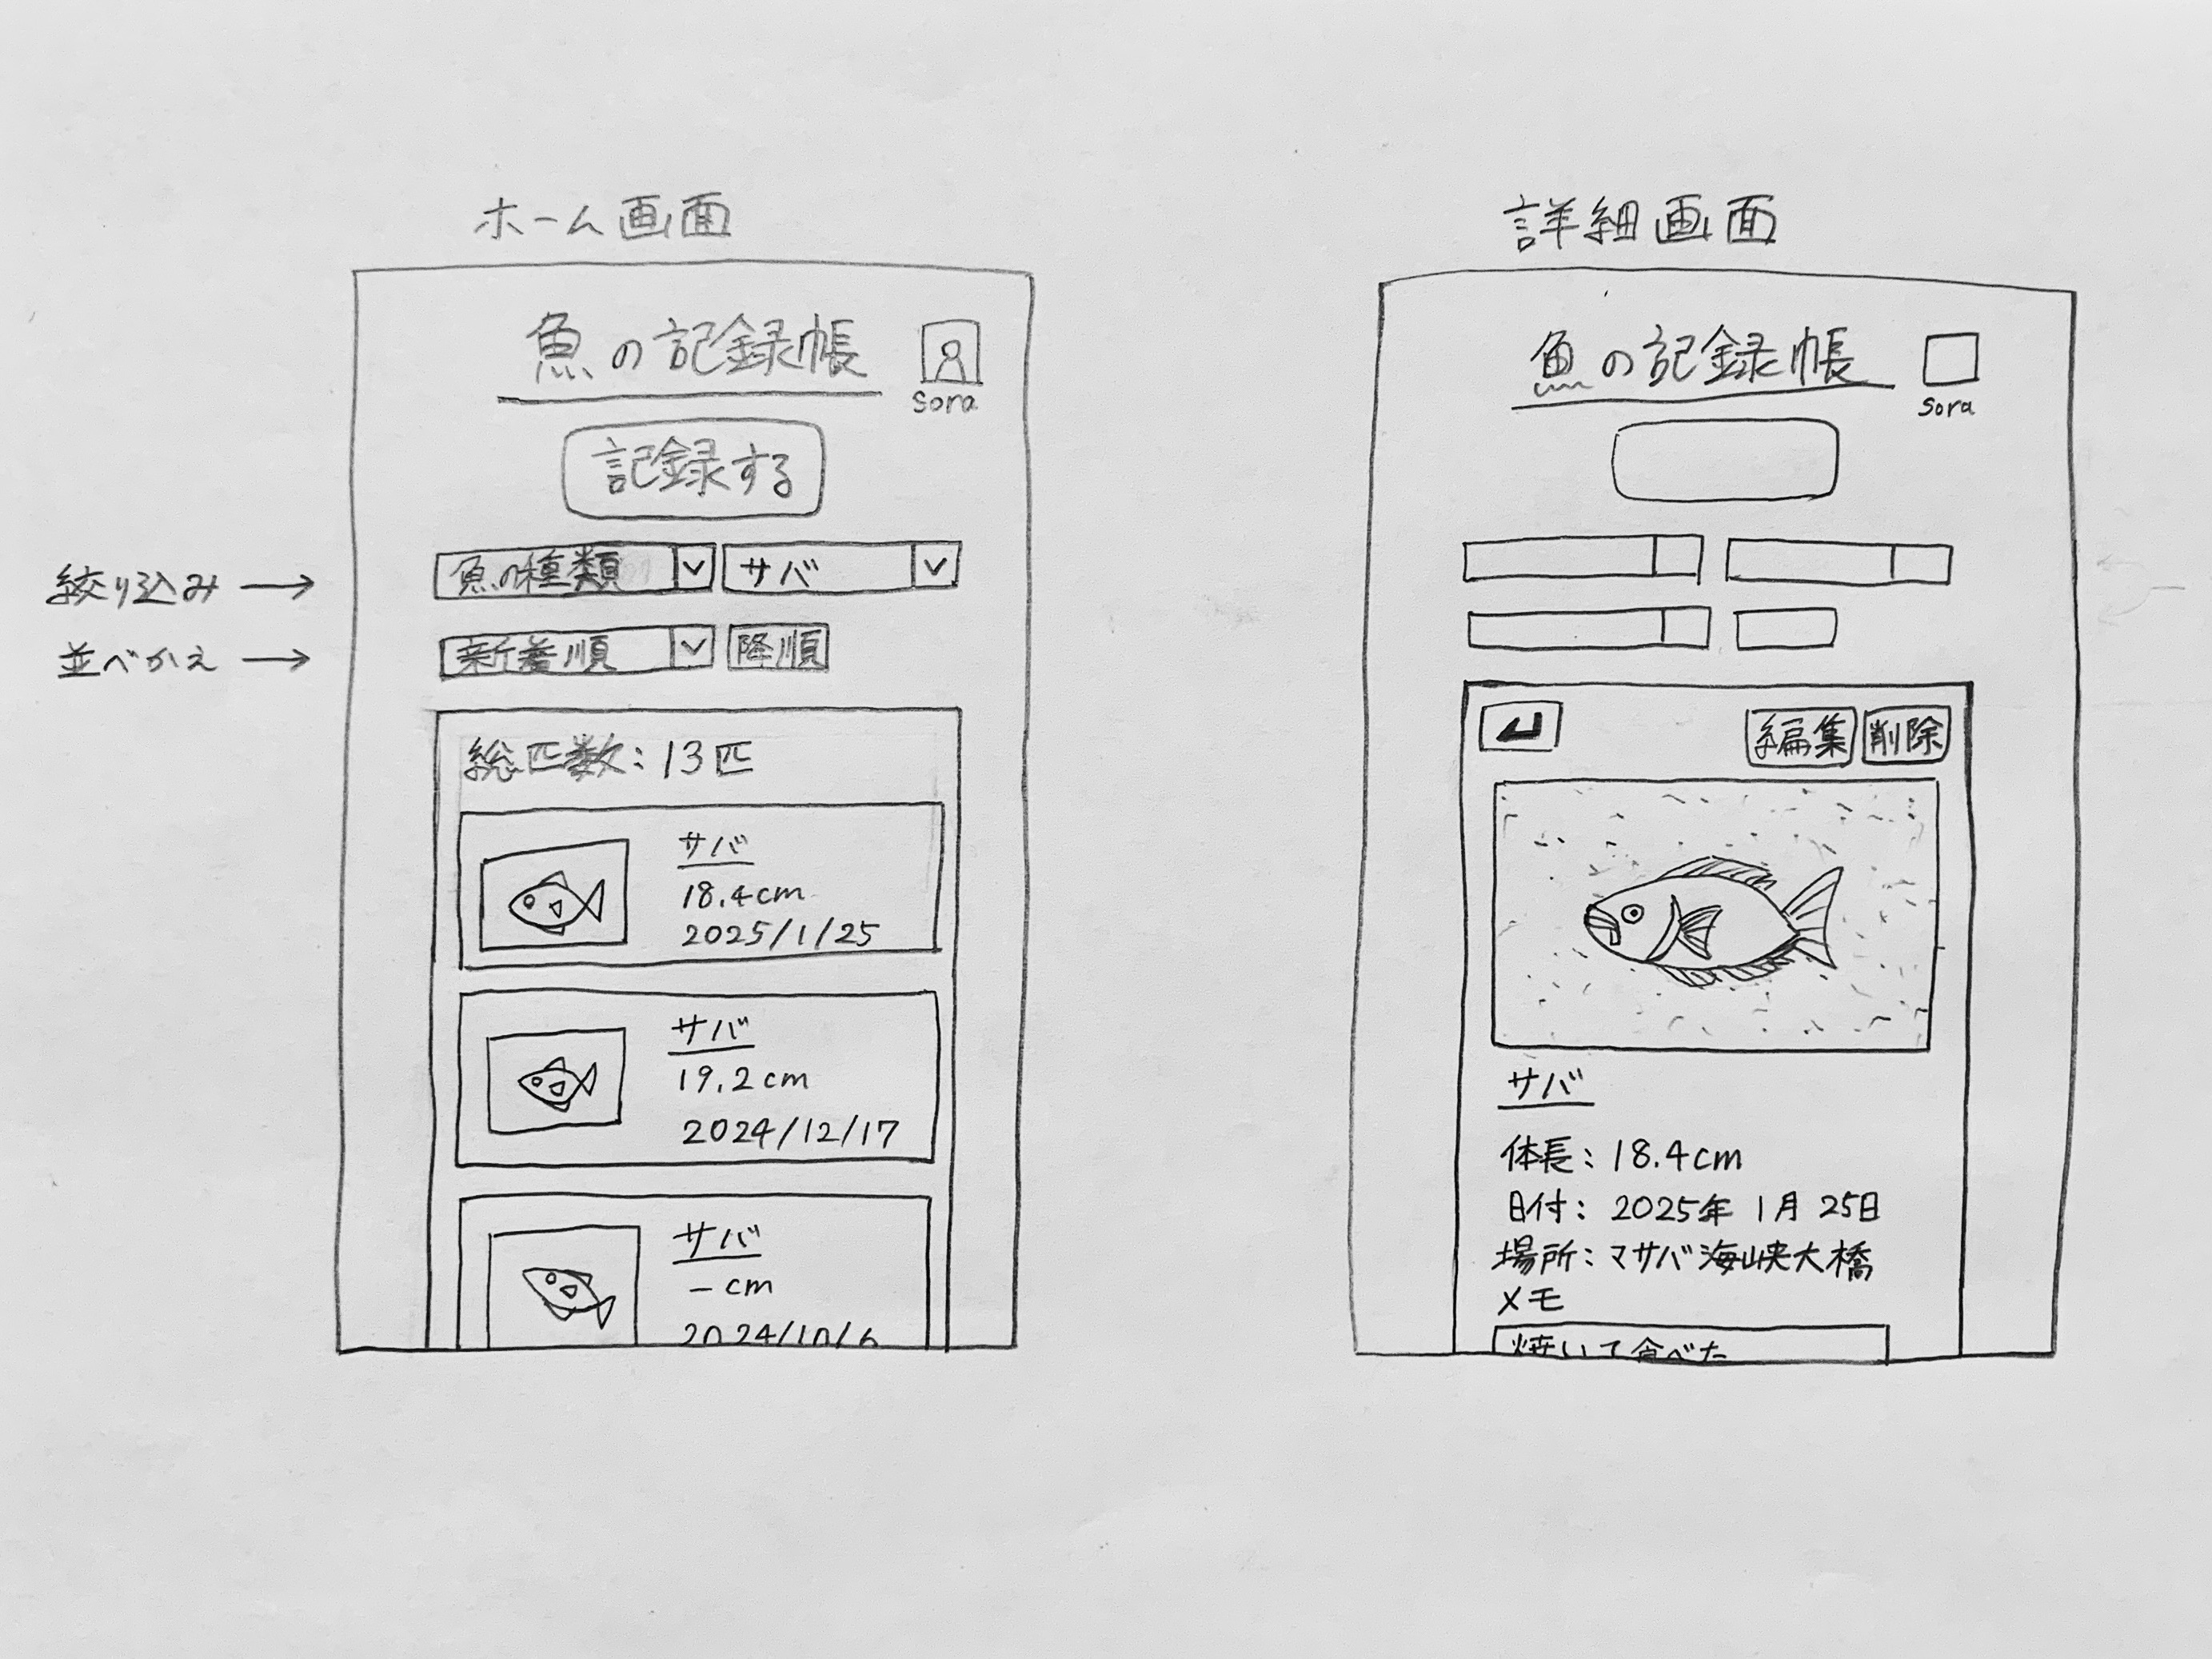 ホーム画面
魚の記録帳
sora
記録する
絞り込み →
魚の種類
サバ
並べかえ →
新着順
降順
総匹数：13匹
サバ
18.4cm
2025/1/25
サバ
19.2cm
2024/12/17
サバ
-cm
2024/10/6
詳細画面
魚の記録帳
sora
編集
削除
サバ
体長：18.4cm
日付：2025年1月25日
場所：マサバ海峡大橋
メモ
焼いて食べた